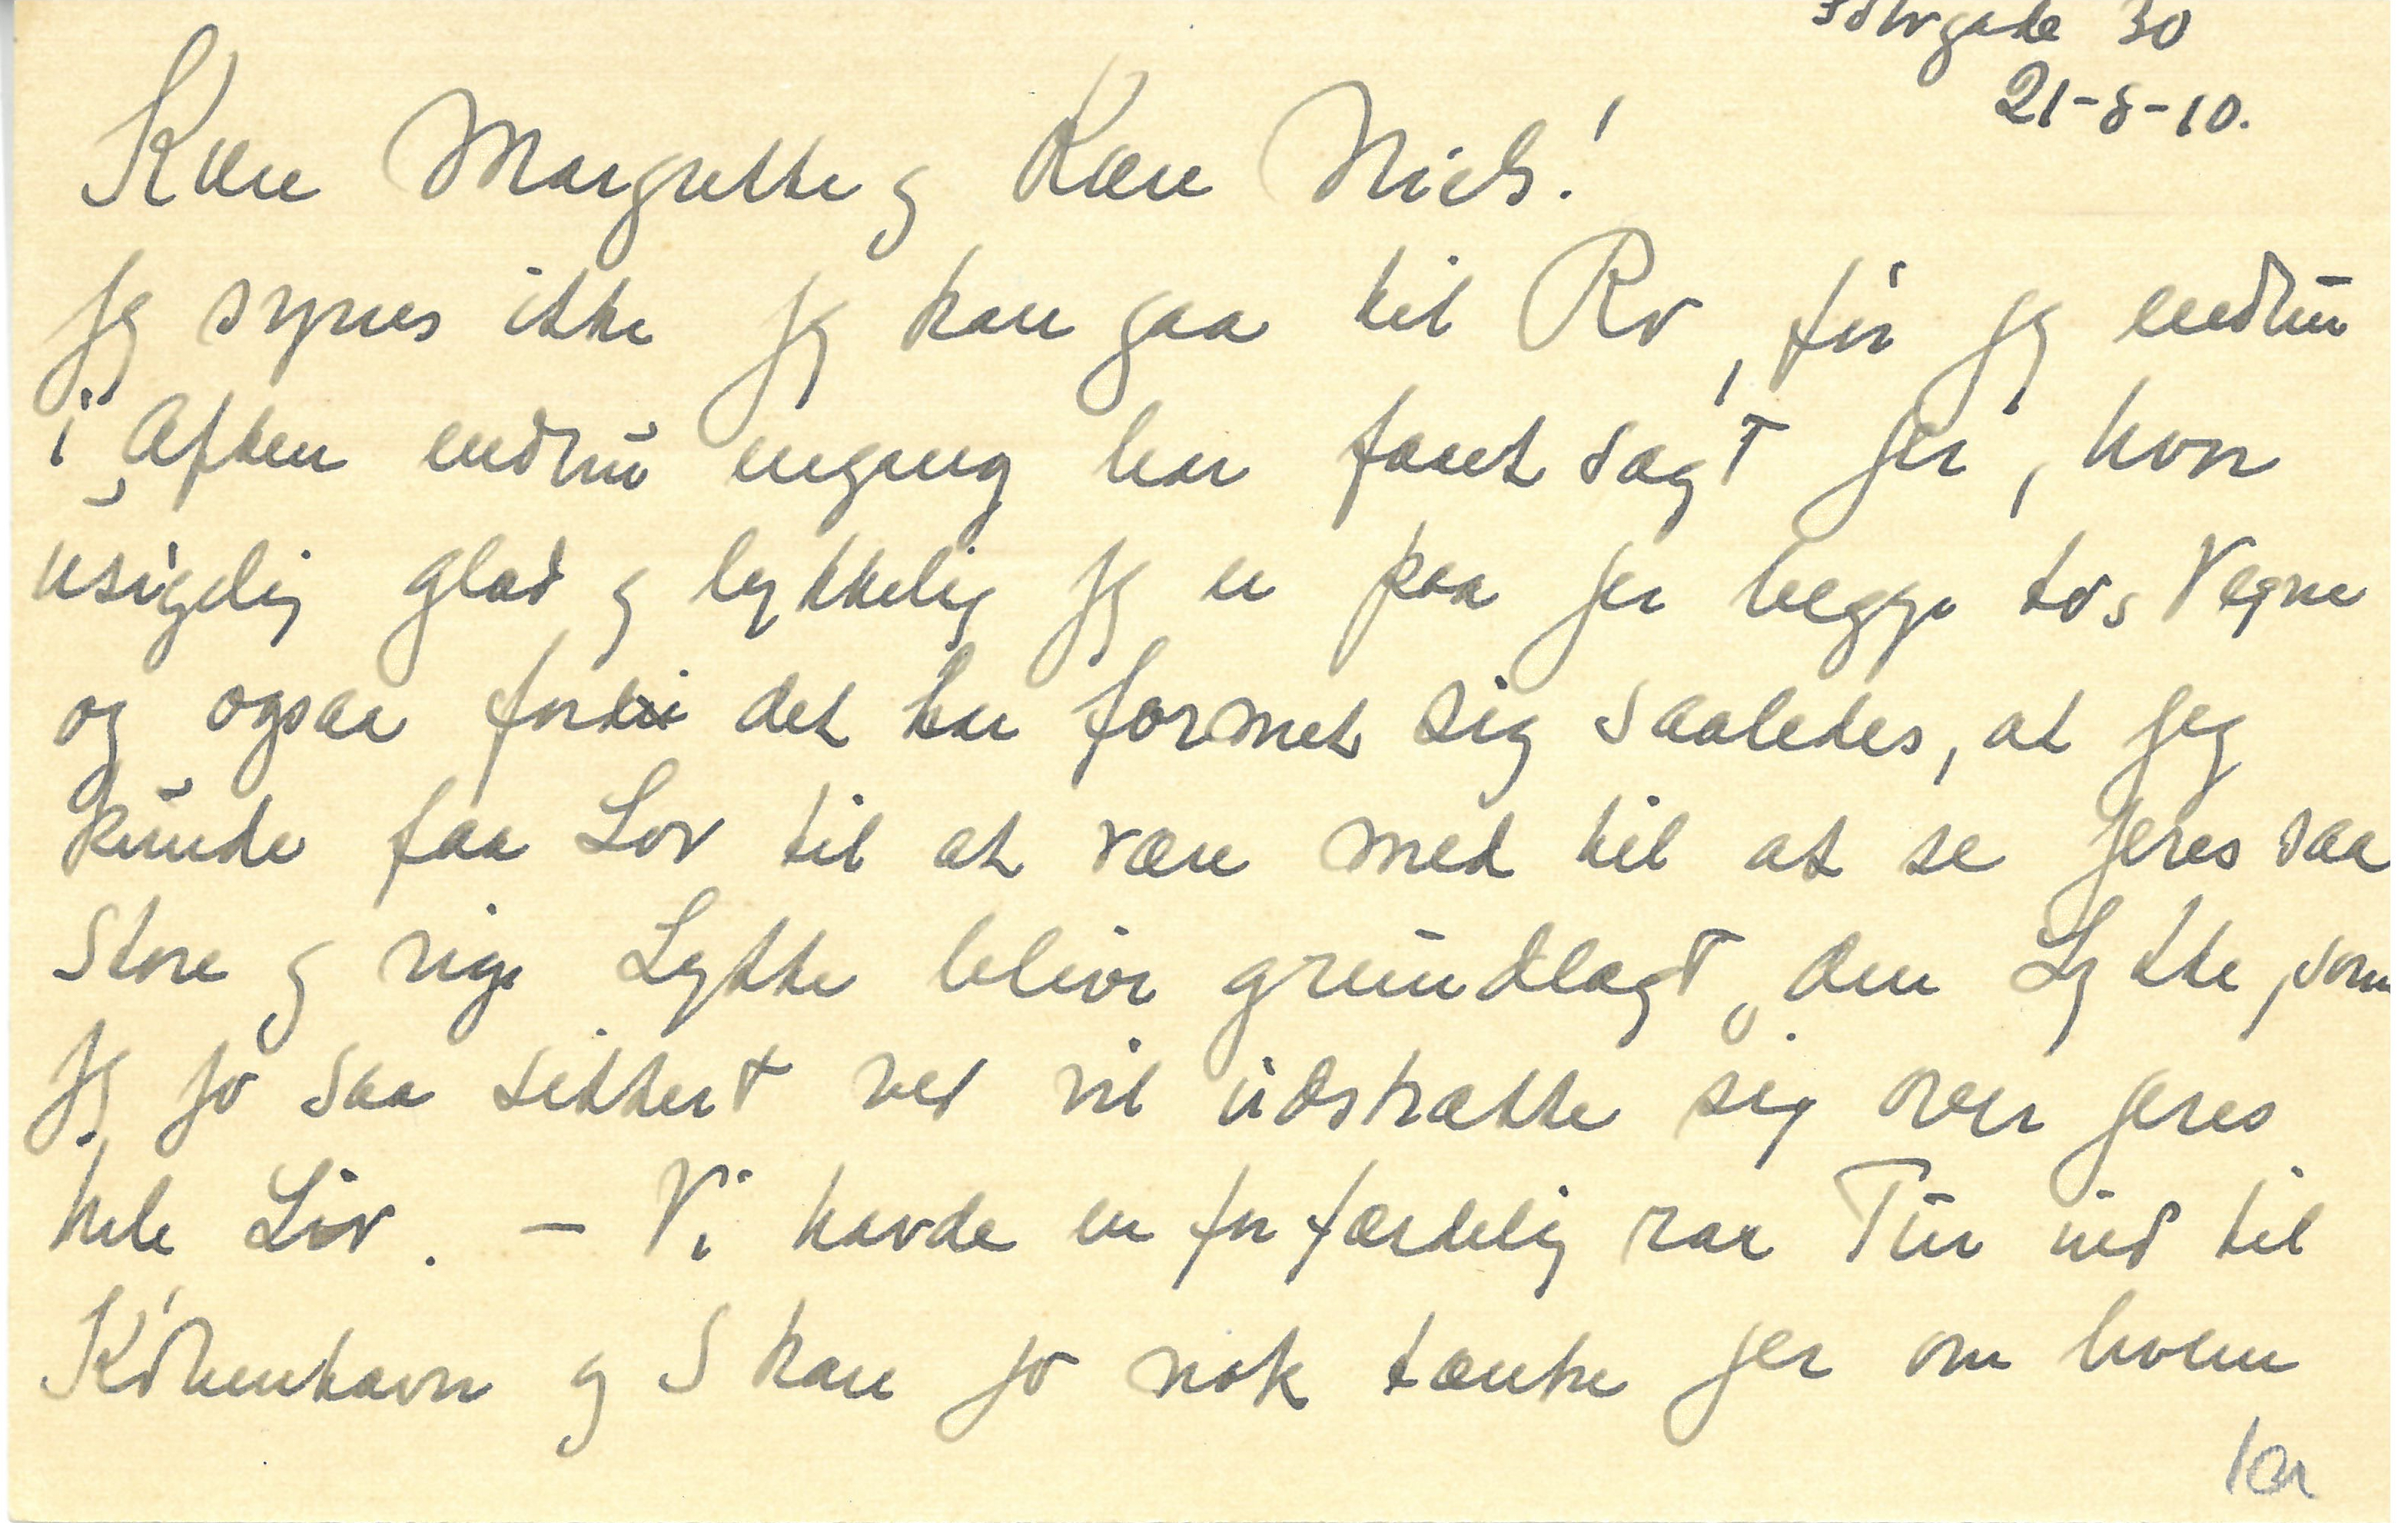 Sølvgade 30
21-8-10.
Kære Margrethe og Kære Niels!
Jeg synes ikke jeg kan gaa til Ro, før jeg endnu
i Aften endnu engang har faaet sagt Jer, hvor
usigelig glad og lykkelig jeg er paa Jer begge to's Vegne
og ogsaa fordi det har formet sig saaledes, at jeg
kunde faa Lov til at være med til at se Jeres saa
store og rige Lykke blive grundlagt, den Lykke, som
jeg jo saa sikkert ved vil udstrække sig over Jeres
hele Liv. – Vi havde en forfærdelig rar Tur ind til
København og I kan jo nok tænke Jer om hvem